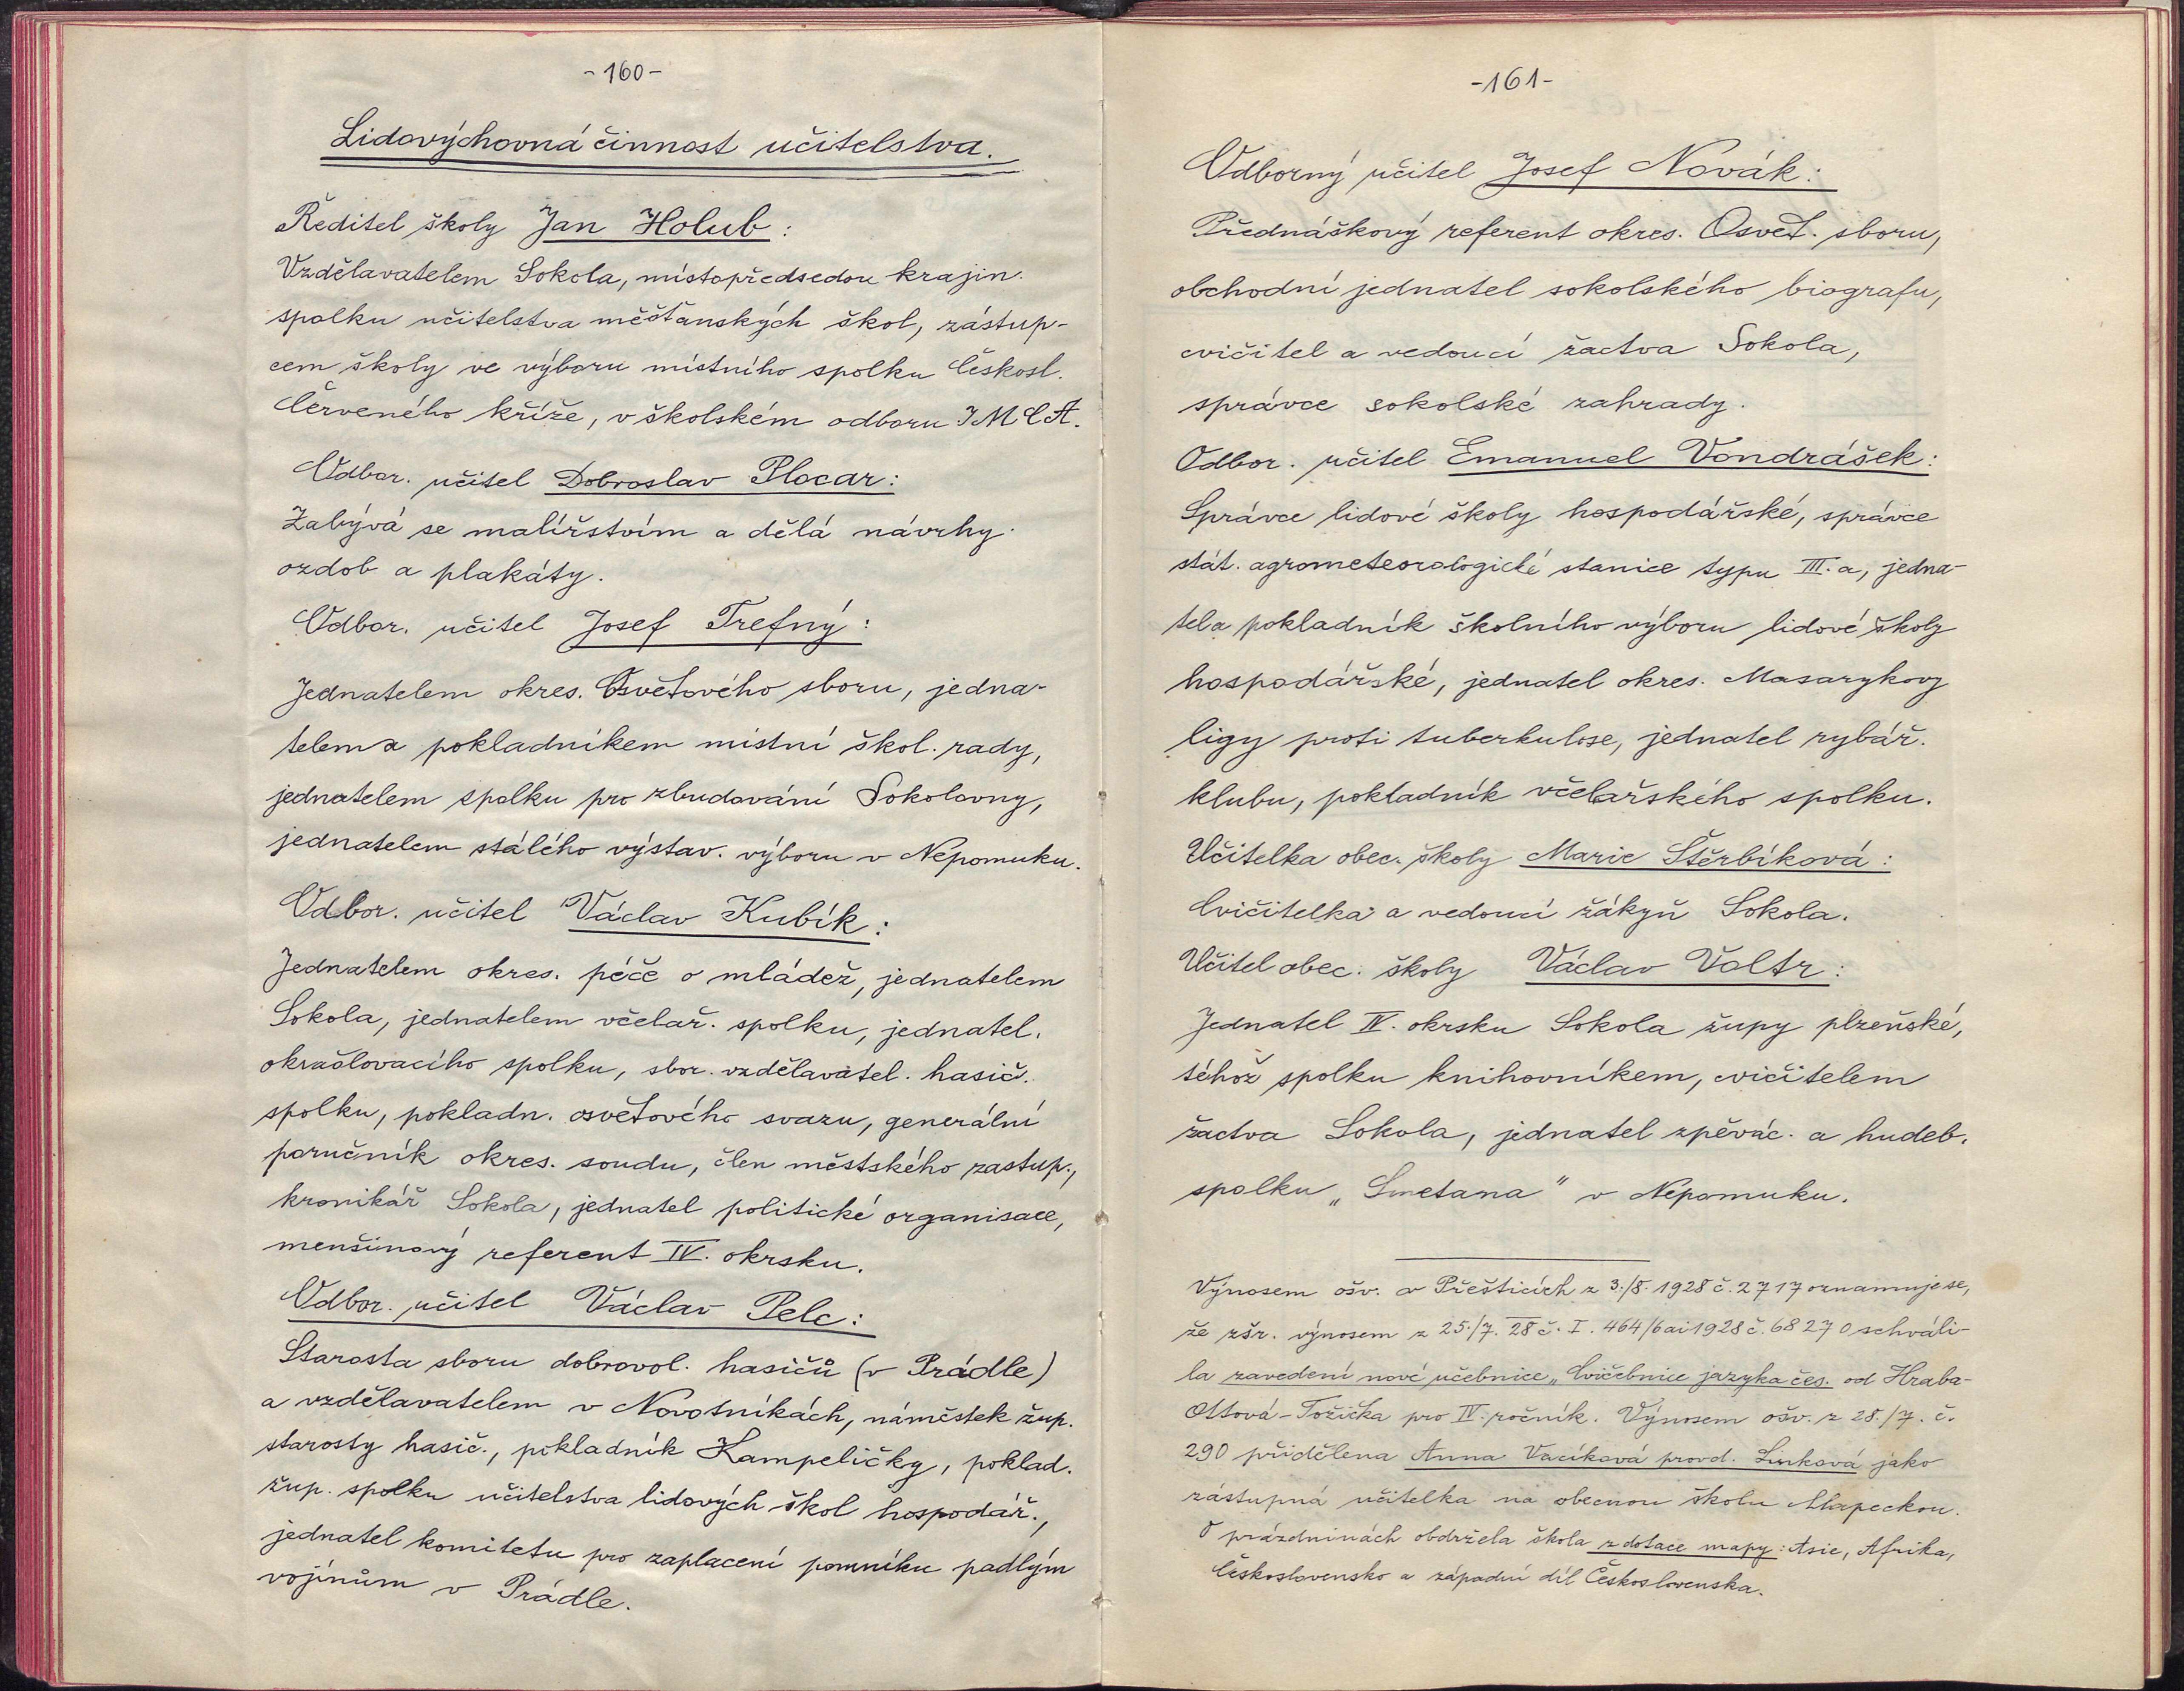 -160-
Lidovýchovná činnost učitelstva.
Ředitel školy Jan Holub:
Vzdělavatelem Sokola, místopředsedou krajin.
spolku učitelstva měšťanských škol, zástup-
cem školy ve výboru místního spolku Českosl.
Červeného kříže, v školském odboru IMCA.
Odbor. učitel Dobroslav Plocar:
Zabývá se malířstvím a dělá návrhy
ozdob a plakáty.
Odbor. učitel Josef Trefný:
Jednatelem okres. Osvětového sboru, jedna-
telem a pokladníkem místní škol. rady,
jednatelem spolku pro zbudování Sokolovny,
jednatelem stálého výstav. výboru v Nepomuku.
Odbor. učitel Václav Kubík:
Jednatelem okres. péče o mládež, jednatelem
Sokola, jednatelem včelař. spolku, jednatel.
okrašlovacího spolku, sbor. vzdělavatel. hasič.
spolku, pokladn. osvětového svazu, generální
poručník okres. soudu, člen městského zastup.,
kronikář Sokola, jednatel politické organisace,
menšinový referent IV. okrsku.
Odbor. učitel Václav Pelc:
Starosta sboru dobrovol. hasičů (v Prádle)
a vzdělavatelem v Novotníkách, náměstek žup.
starosty hasič., pokladník Kampeličky, poklad.
žup. spolku učitelstva lidových škol hospodář.,
jednatel komitetu pro zaplacení pomníku padlým
vojínům v Prádle.
-161-
Odborný učitel Josef Novák:
Přednáškový referent okres. Osvět. sboru,
obchodní jednatel sokolského biografu,
cvičitel a vedoucí žactva Sokola,
správce sokolské zahrady.
Odbor. učitel Emanuel Vondrášek:
Správce lidové školy hospodářské, správce
stát. agrometeorologické stanice typu III. a, jedna-
tel a pokladník školního výboru lidové školy
hospodářské, jednatel okres. Masarykovy
ligy proti tuberkulose, jednatel rybář.
klubu, pokladník včelařského spolku.
Učitelka obec. školy Marie Štěrbíková:
Cvičitelka a vedoucí žákyň Sokola.
Učitel obec. školy Václav Valtr:
Jednatel IV. okrsku Sokola župy plzeňské,
téhož spolku knihovníkem, cvičitelem
žactva Sokola, jednatel zpěvác. a hudeb.
spolku „Smetana" v Nepomuku.
Výnosem ošv. v Přešticích z 3./8. 1928 č. 2717 oznamuje se,
že zšr. výnosem z 25./7. 28 č. I. 464/6 ai 1928 č. 68270 schváli-
la zavedení nové učebnice „Cvičebnice jazyka čes. od Hraba-
Ottová-Tožička pro IV. ročník. Výnosem ošv. z 28./7. č.
290 přidělena Anna Vacíková provd. Linková jako
zástupná učitelka na obecnou školu
O prázdninách obdržela škola z dotace mapy: Asie, Afrika,
Československo a západní díl Československa.